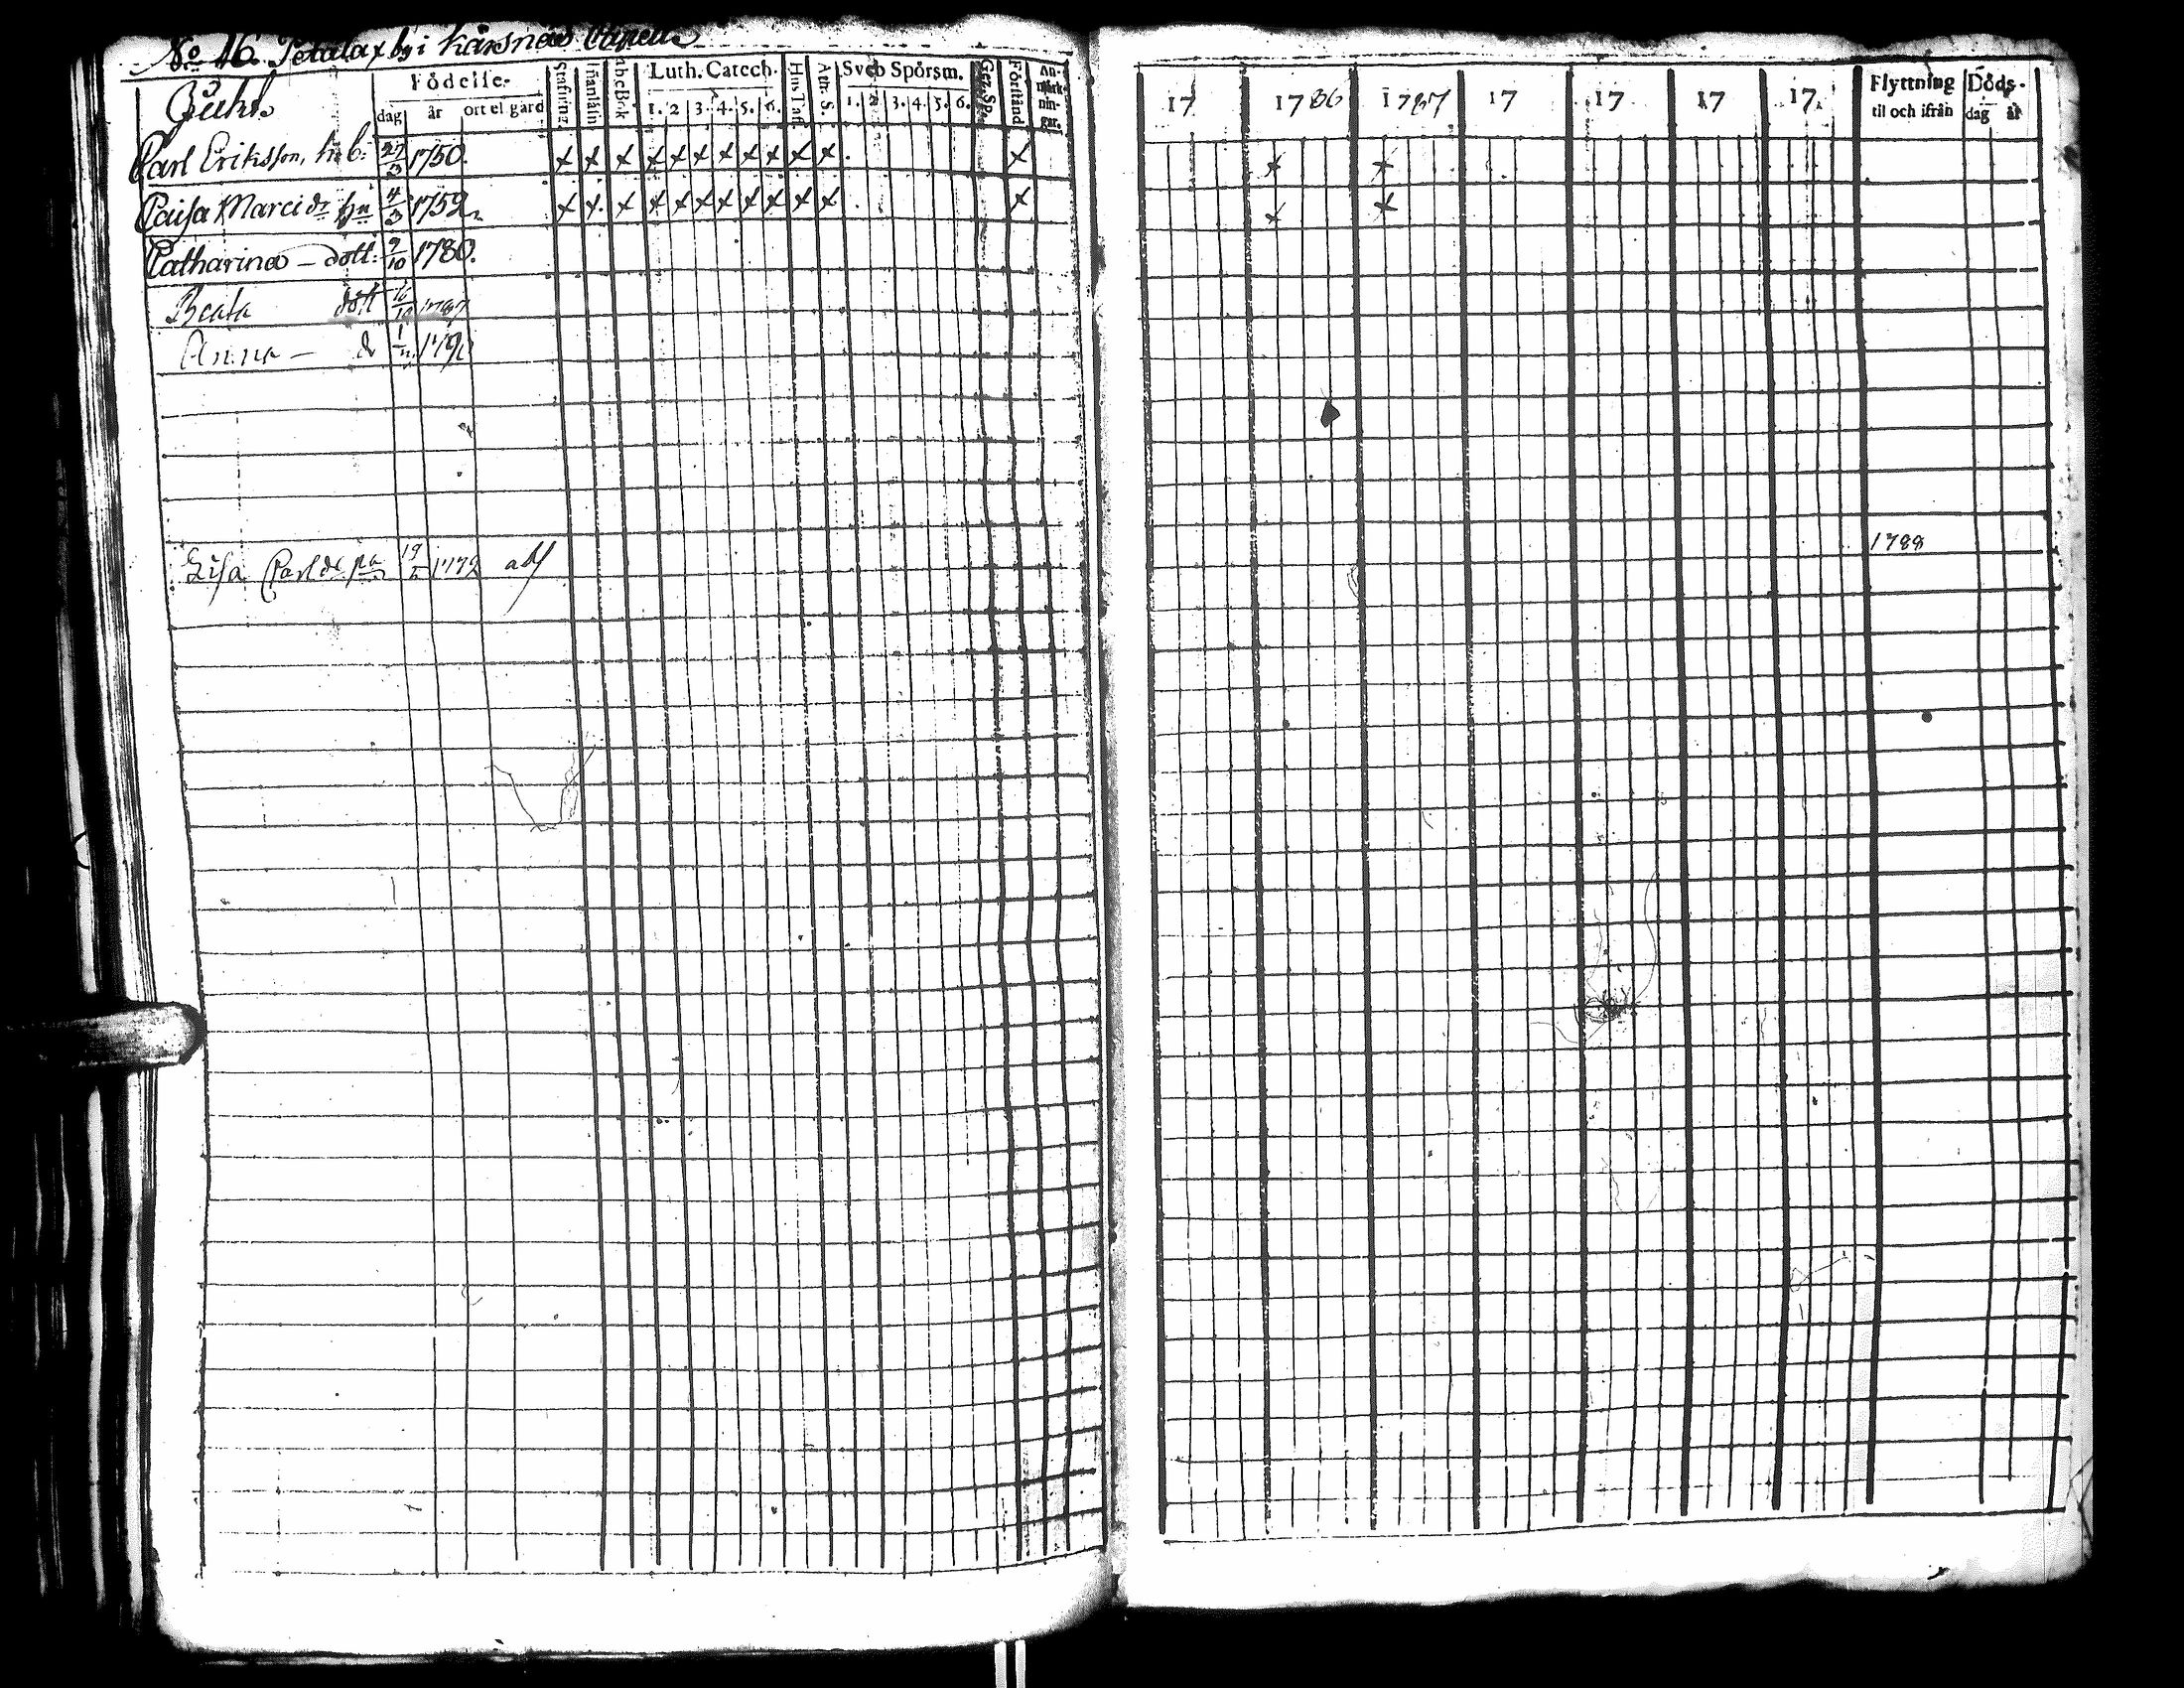 No 16. Petalax by i Kårsnäs Capell
Födelse-
dag år ort el. gård
Stafning Innanläsn abc Bok Luth. Catech. Hus Tafl. Ath. S. Sveb Spörsm. Förstånd An-märk-nin-gar.
1. 2 3. 4. 5. 6. 1. 2 3. 4. 5. 6.
Carl Eriksson, h. b. 27/3 1750. x x x x x x x x x x x . x
Caisa Marci dr hu 4/3 1752 x x x x x x x x x x x . x
Catharina — dott: 9/10 1780.
Beata dott 16/10 1787
Anna — dr 1/11 1790
Lisa Carl dr pa 19 1772
17 1786 1787 17 17 17 17. Flyttning til och ifrån Döds- dag år
x x
x x
1788